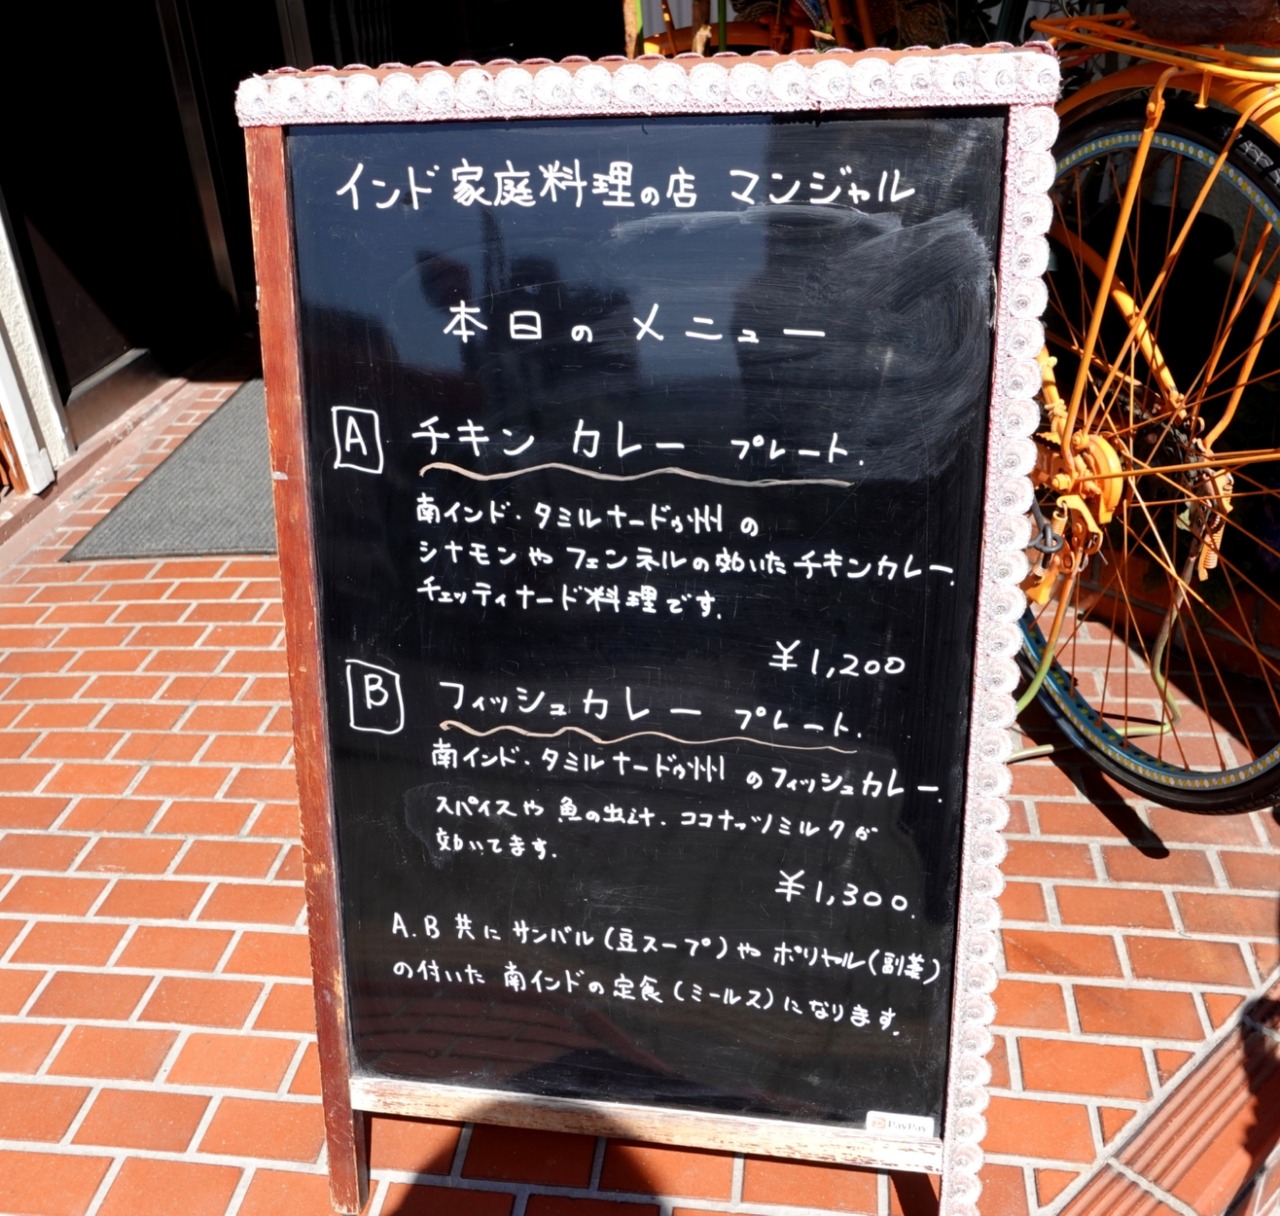 インド家庭料理の店 マンジャル
本日のメニュー
A チキンカレープレート.
南インド・タミルナードゥ州の
シナモンやフェンネルの効いたチキンカレー.
チェッティナード料理です.
¥1,200
B フィッシュカレープレート.
南インド・タミルナードゥ州のフィッシュカレー.
スパイスや魚の出汁、ココナッツミルクが
効いてます.
¥1,300.
A.B共にサンバル(豆スープ)やポリヤル(副菜)
の付いた南インドの定食(ミールス)になります.
PayPay